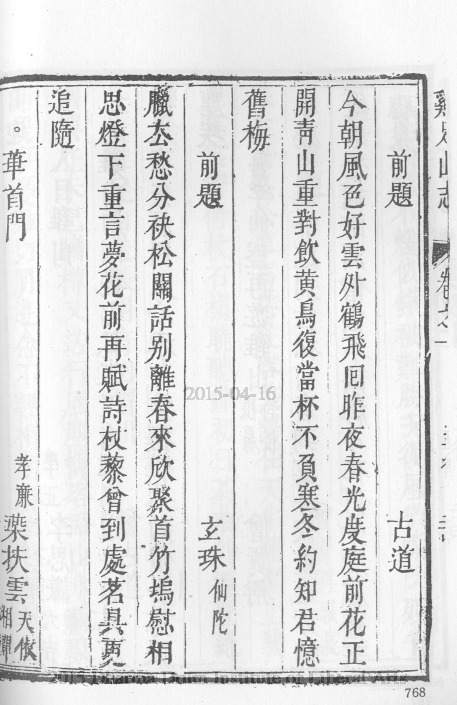 雞足山志 卷之一
前題 古道
今朝風色好雲外鶴飛囘昨夜春光度庭前花正
開靑山重對飲黄鳥復當杯不負寒冬約知君憶
舊梅
前題 玄珠 仙陀
臘去愁分袂松關話别離春來欣聚首竹塢慰相
思燈下重言夢花前再賦詩杖藜曾到處茗具更
追隨
。華首門 孝亷 葉扶雲 天俶 湘潭
2015-04-16
Institute of Liberal Arts
768